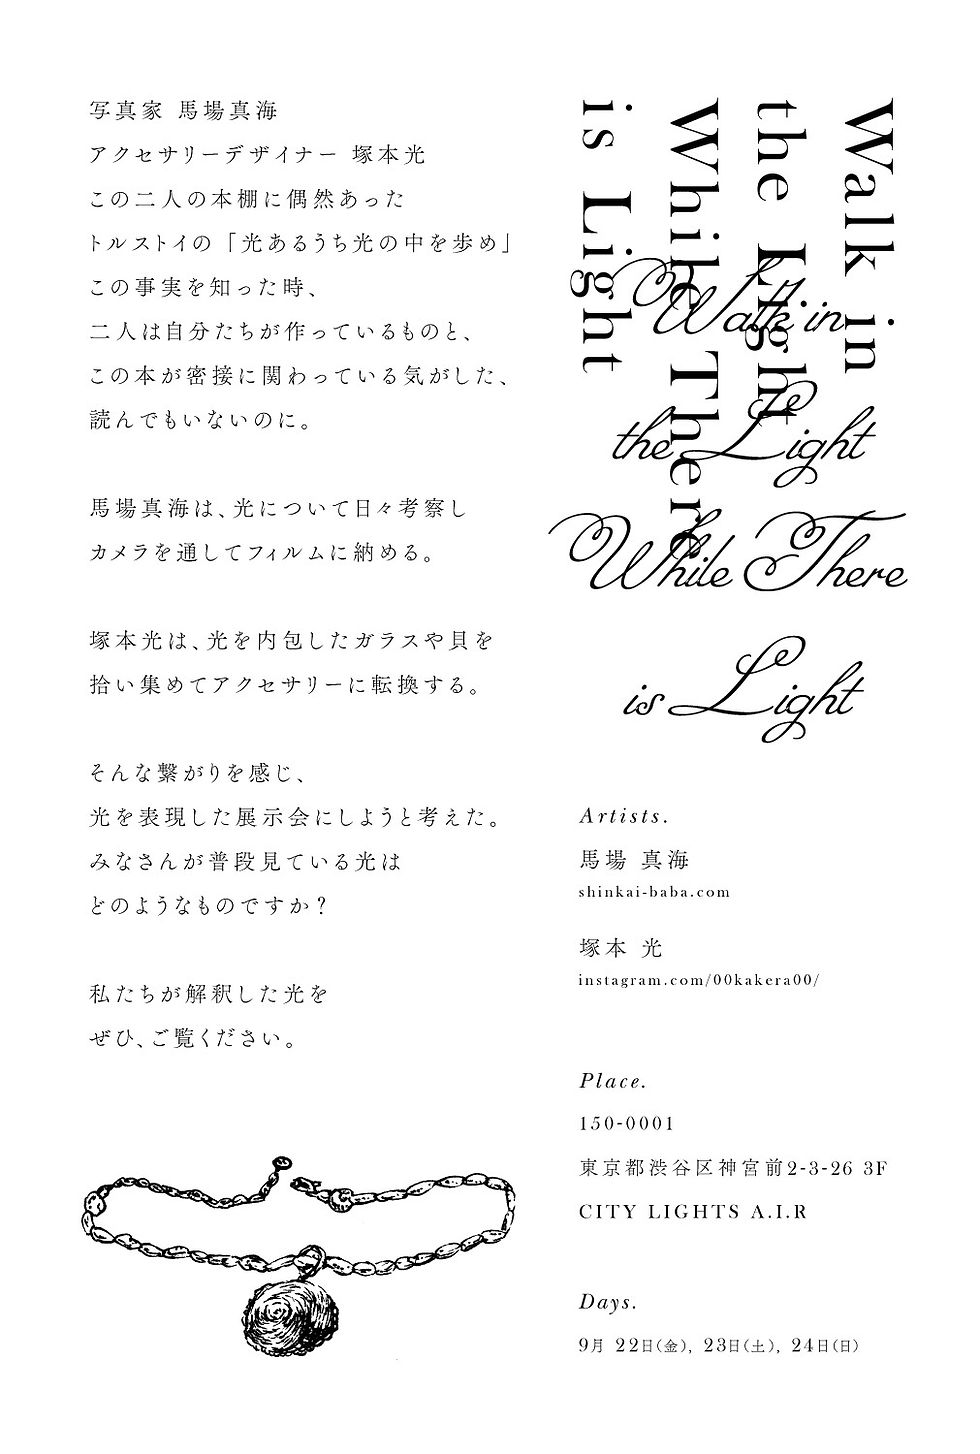 写真家 馬場真海
アクセサリーデザイナー 塚本光
この二人の本棚に偶然あった
トルストイの「光あるうち光の中を歩め」
この事実を知った時、
二人は自分たちが作っているものと、
この本が密接に関わっている気がした、
読んでもいないのに。
馬場真海は、光について日々考察し
カメラを通してフィルムに納める。
塚本光は、光を内包したガラスや貝を
拾い集めてアクセサリーに転換する。
そんな繋がりを感じ、
光を表現した展示会にしようと考えた。
みなさんが普段見ている光は
どのようなものですか?
私たちが解釈した光を
ぜひ、ご覧ください。
Walk in
the Light
While There
is Light
Walk in
the Light
While There
is Light
Artists.
馬場 真海
shinkai-baba.com
塚本 光
instagram.com/00kakera00/
Place.
150-0001
東京都渋谷区神宮前2-3-26 3F
CITY LIGHTS A.I.R
Days.
9月 22日(金), 23日(土), 24日(日)